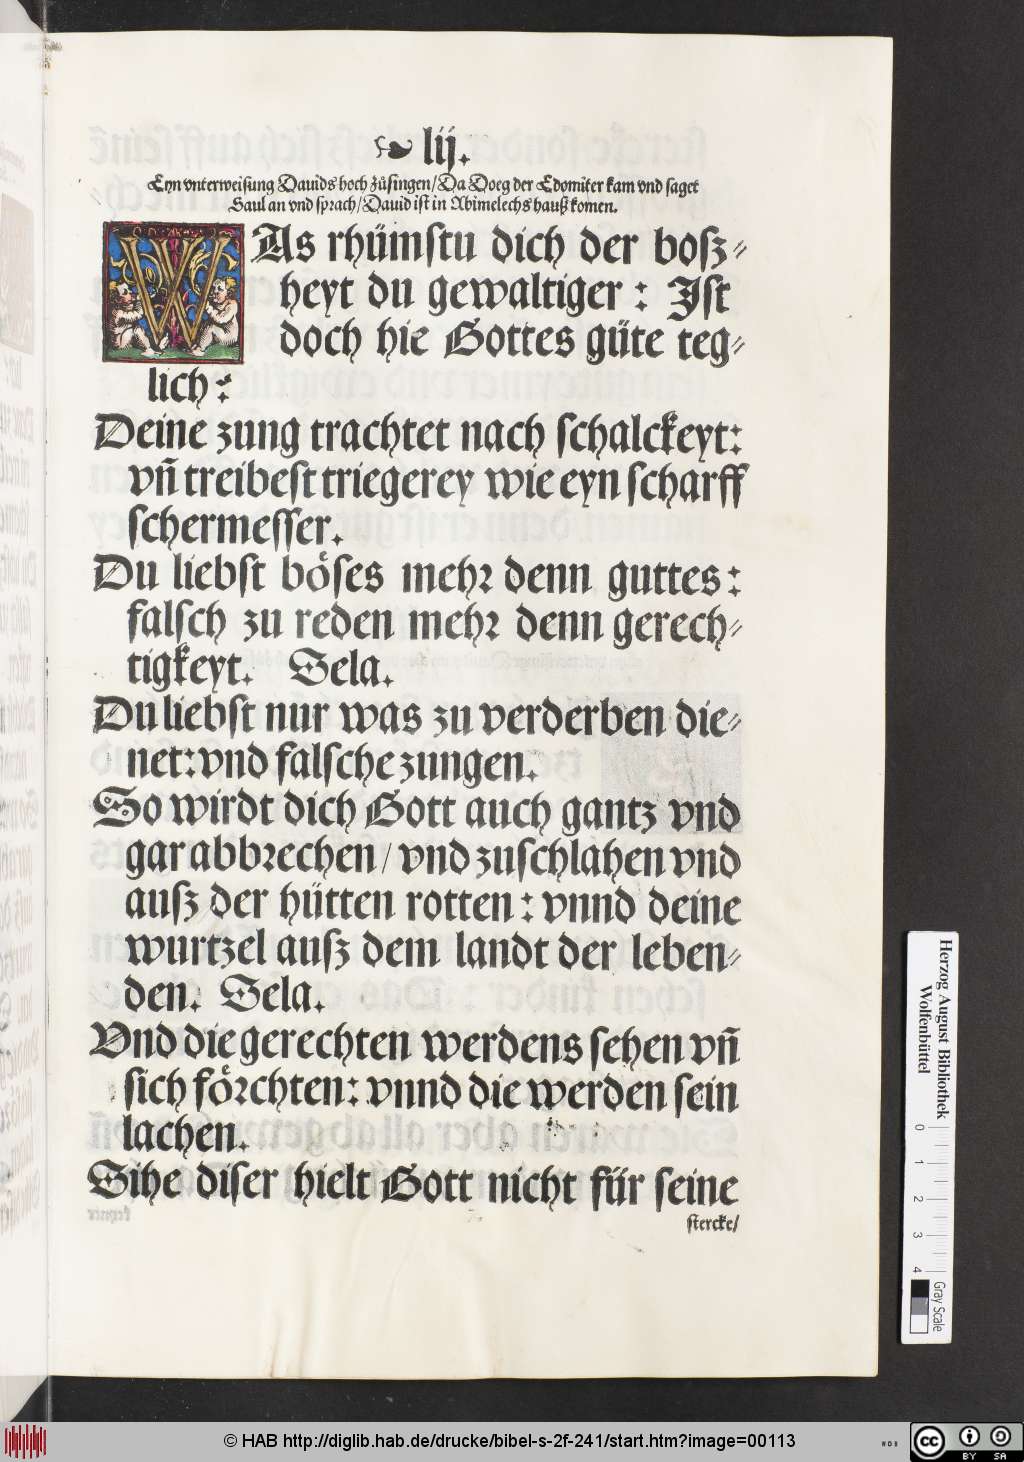 ❧ lij.
Eyn vnterweisung Dauids hoch züsingen/ Da Doeg der Edomiter kam vnd saget
Saul an vnd sprach/ Dauid ist in Abimelechs hauß komen.
WAs rhümstu dich der bosz⸗
heyt du gewaltiger : Ist
doch hie Gottes güte teg⸗
lich :
Deine zung trachtet nach schalckeyt:
vñ treibest triegerey wie eyn scharff
schermesser.
Du liebst böses mehr denn guttes :
falsch zu reden mehr denn gerech⸗
tigkeyt. Sela.
Du liebst nur was zu verderben die⸗
net: vnd falsche zungen.
So wirdt dich Gott auch gantz vnd
gar abbrechen / vnd zuschlahen vnd
ausz der hütten rotten : vnnd deine
wurtzel ausz dem landt der leben⸗
den. Sela.
Vnd die gerechten werdens sehen vñ
sich förchten: vnnd die werden sein
lachen.
Sihe diser hielt Gott nicht für seine
stercke/
Herzog August Bibliothek
Wolfenbüttel
0 1 2 3 4
Gray Scale
© HAB http://diglib.hab.de/drucke/bibel-s-2f-241/start.htm?image=00113
cc BY SA